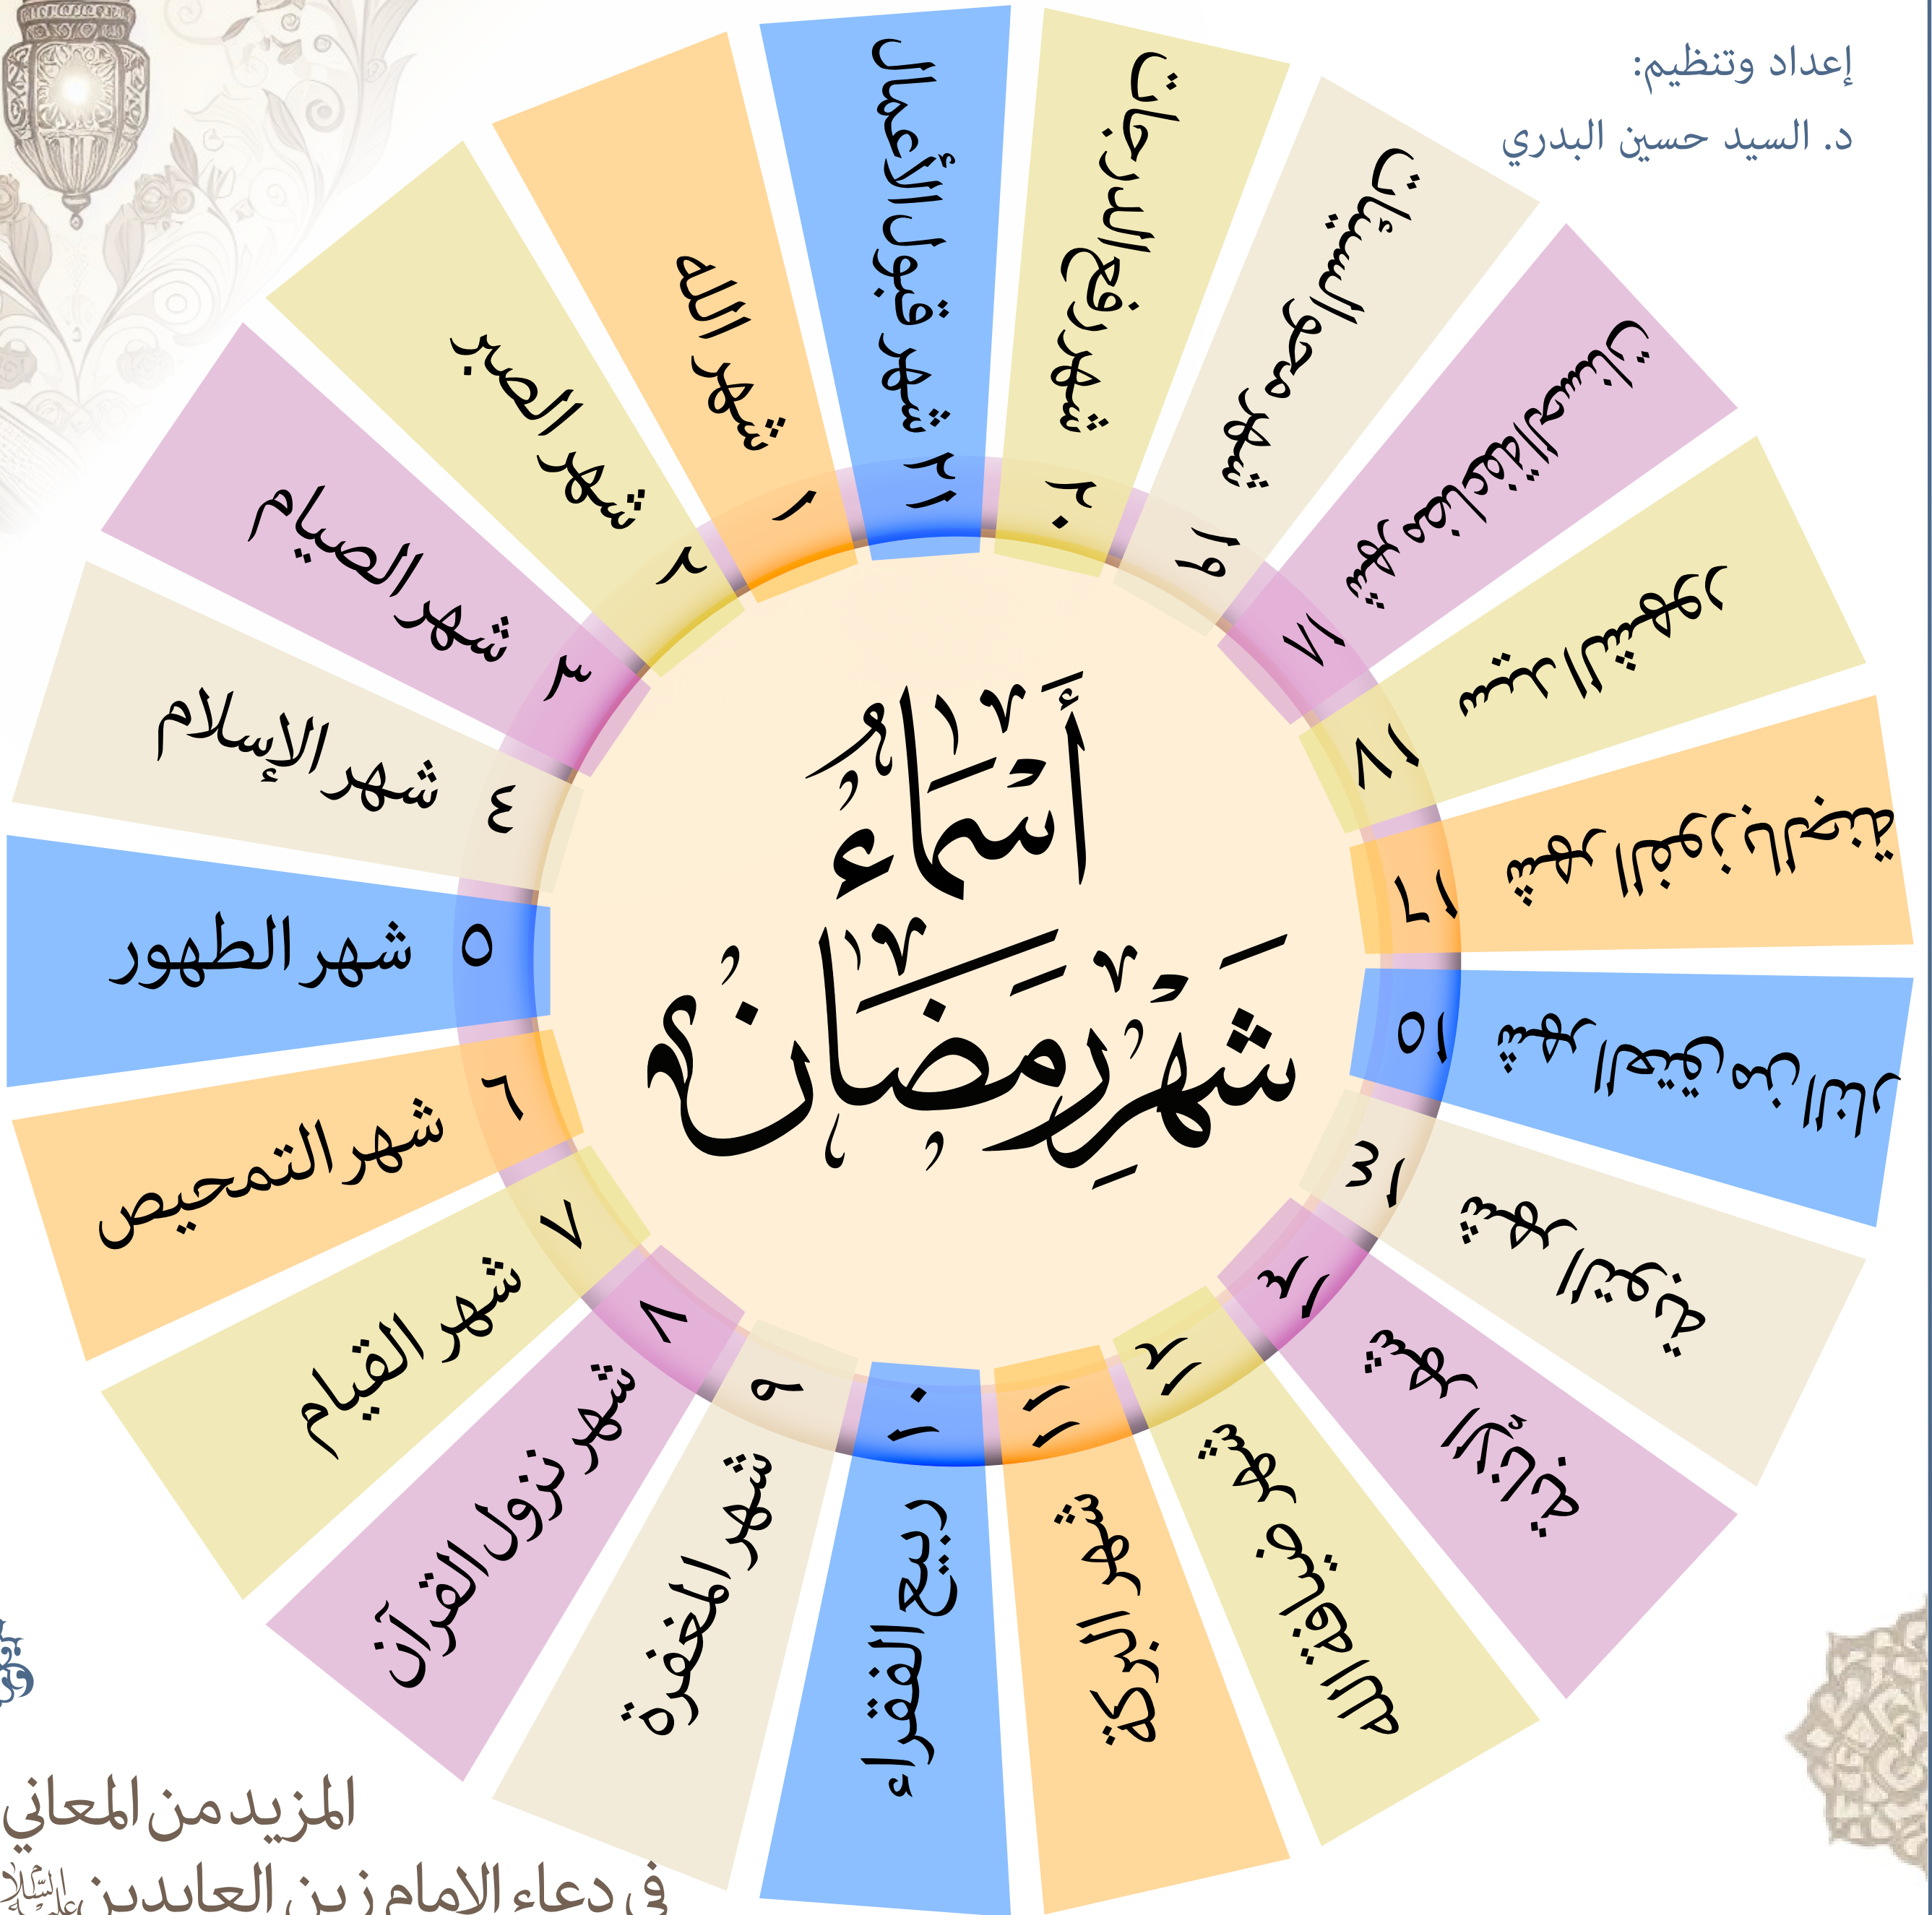 إعداد وتنظيم:
د. السيد حسين البدري
أَسْمَاءُ
شَهْرِ رَمَضَانَ
١ شهر الله
٢ شهر الصبر
٣ شهر الصيام
٤ شهر الإسلام
٥ شهر الطهور
٦ شهر التمحيص
٧ شهر القيام
٨ شهر نزول القرآن
٩ شهر المغفرة
١٠ ربيع الفقراء
١١ شهر البركة
١٢ شهر ضيافة الله
١٣ شهر الإنابة
١٤ شهر التوبة
١٥ شهر العتق من النار
١٦ شهر الفوز بالجنة
١٧ سيد الشهور
١٨ شهر مضاعفة الحسنات
١٩ شهر محو السيئات
٢٠ شهر رفع الدرجات
٢١ شهر قبول الأعمال
المزيد من المعاني
في دعاء الامام زين العابدين